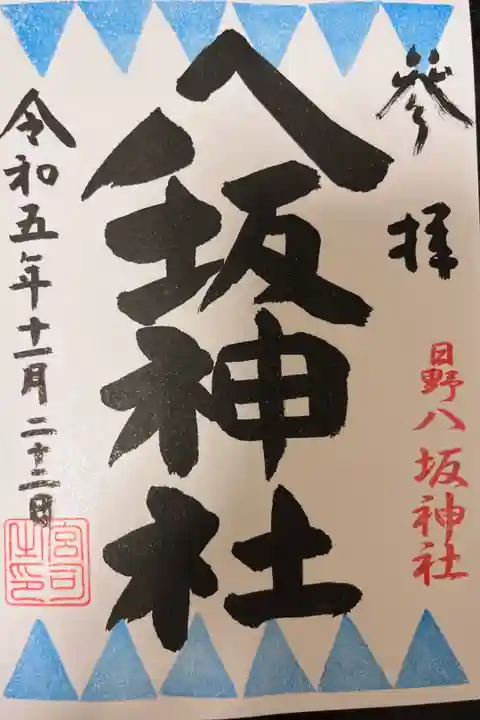 参拝
日野八坂神社
八坂神社
令和五年十一月二十三日
宮司之印